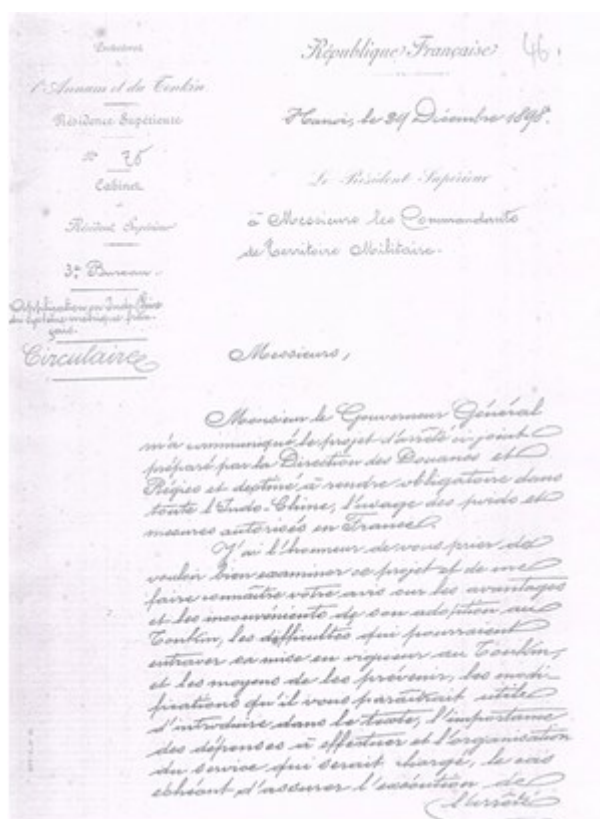 Protectorat
de
l'Annam et du Tonkin
Résidence Supérieure
N° 76
Cabinet
du
Résident Supérieur
3e Bureau.
Application en Indo-Chine
du système métrique fran-
çais.
Circulaire
République Française
46.
Hanoi, le 29 Décembre 1898.
Le Résident Supérieur
à Messieurs les Commandants
de Territoire Militaire.
Messieurs,
Monsieur le Gouverneur Général
m'a communiqué le projet d'arrêté ci-joint
préparé par la Direction des Douanes et
Régies et destiné à rendre obligatoire dans
toute l'Indo-Chine, l'usage des poids et
mesures autorisés en France.
J'ai l'honneur de vous prier de
vouloir bien examiner ce projet et de me
faire connaître votre avis sur les avantages
et les inconvénients de son adoption au
Tonkin, les difficultés qui pourraient
entraver sa mise en vigueur au Tonkin,
et les moyens de les prévenir, les modi-
fications qu'il vous paraîtrait utile
d'introduire dans le texte, l'importance
des dépenses à effectuer et l'organisation
du service qui serait chargé, le cas
échéant, d'assurer l'exécution de
l'arrêté